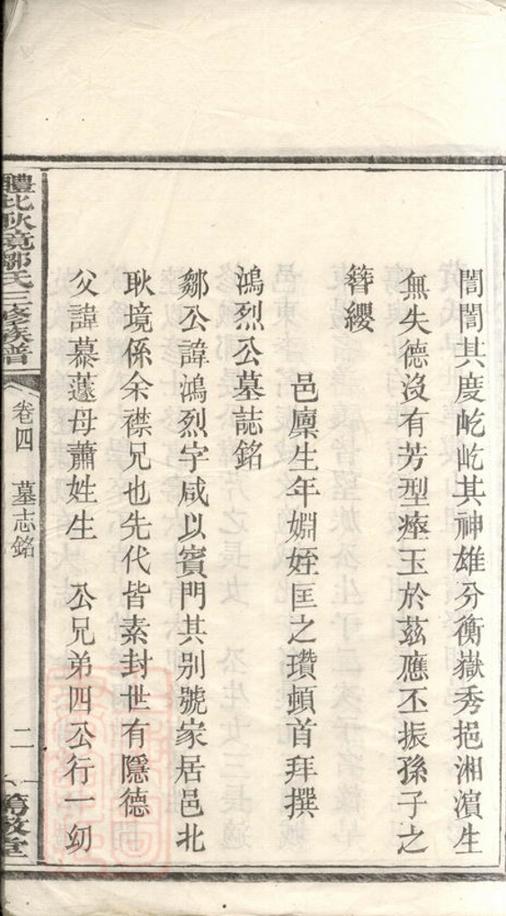 誾誾其度屹屹其神雄分衡嶽秀挹湘濵生
無失德沒有芳型瘞玉於茲應丕振孫子之
簪纓
邑廩生年婣姪匡之瓚頓首拜撰
鴻烈公墓誌銘
鄒公諱鴻烈字咸以賓門其别號家居邑北
耿境係余襟兄也先代皆素封世有隱德
父諱慕蘧母蕭姓生 公兄弟四公行一幼
體比耿境鄒氏三修族譜
卷四 墓志銘
二
敦堂